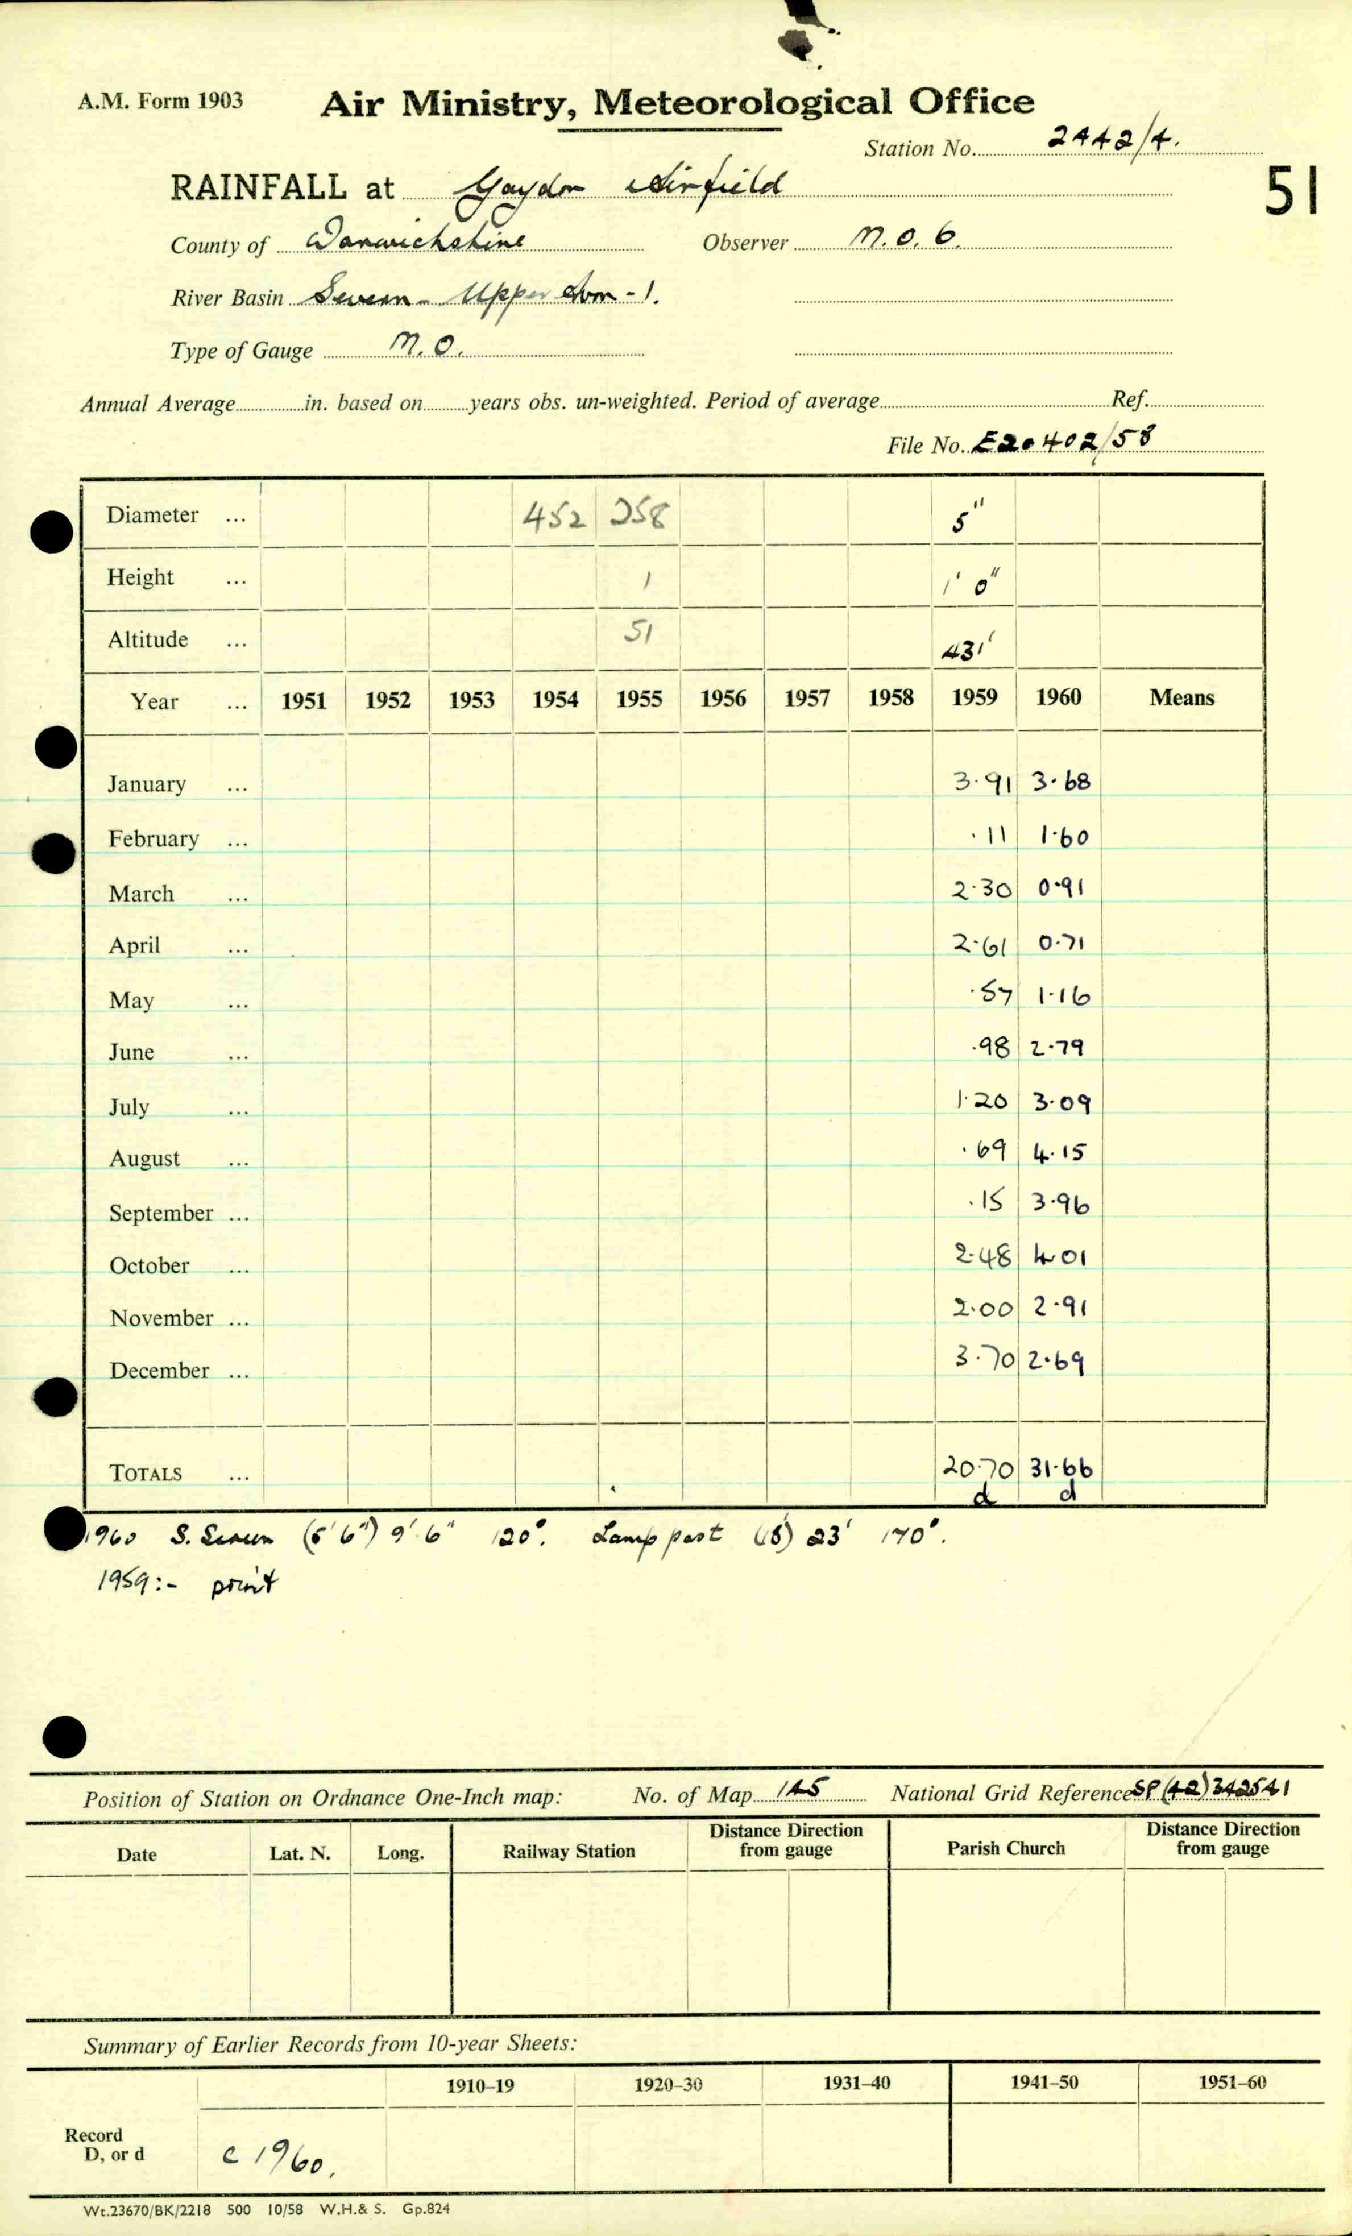 A.M. Form 1903 Air Ministry, Meteorological Office
Station No. 2442/4.
51
RAINFALL at Gaydon Airfield
County of Warwickshire Observer M.O.6.
River Basin Severn - Upper Avon - 1.
Type of Gauge M.O.
Annual Average in. based on years obs. un-weighted. Period of average Ref.
File No. E20402/58
Diameter ... 452 258 5"
Height ... 1 1' 0"
Altitude ... 51 431'
Year ... 1951 1952 1953 1954 1955 1956 1957 1958 1959 1960 Means
January ... 3.91 3.68
February ... .11 1.60
March ... 2.30 0.91
April ... 2.61 0.71
May ... .57 1.16
June ... .98 2.79
July ... 1.20 3.09
August ... .69 4.15
September ... .15 3.96
October ... 2.48 4.01
November ... 2.00 2.91
December ... 3.70 2.69
TOTALS ... 20.70 31.66
d d
1960 S. Screen (5' 6") 9' 6" 120°. Lamp post (15') 23' 170°.
1959:- print
Position of Station on Ordnance One-Inch map: No. of Map 145 National Grid Reference SP(42)342541
Date Lat. N. Long. Railway Station Distance Direction from gauge Parish Church Distance Direction from gauge
Summary of Earlier Records from 10-year Sheets:
1910–19 1920–30 1931–40 1941–50 1951–60
Record
D, or d c 1960.
Wt.23670/BK/2218 500 10/58 W.H.& S. Gp.824